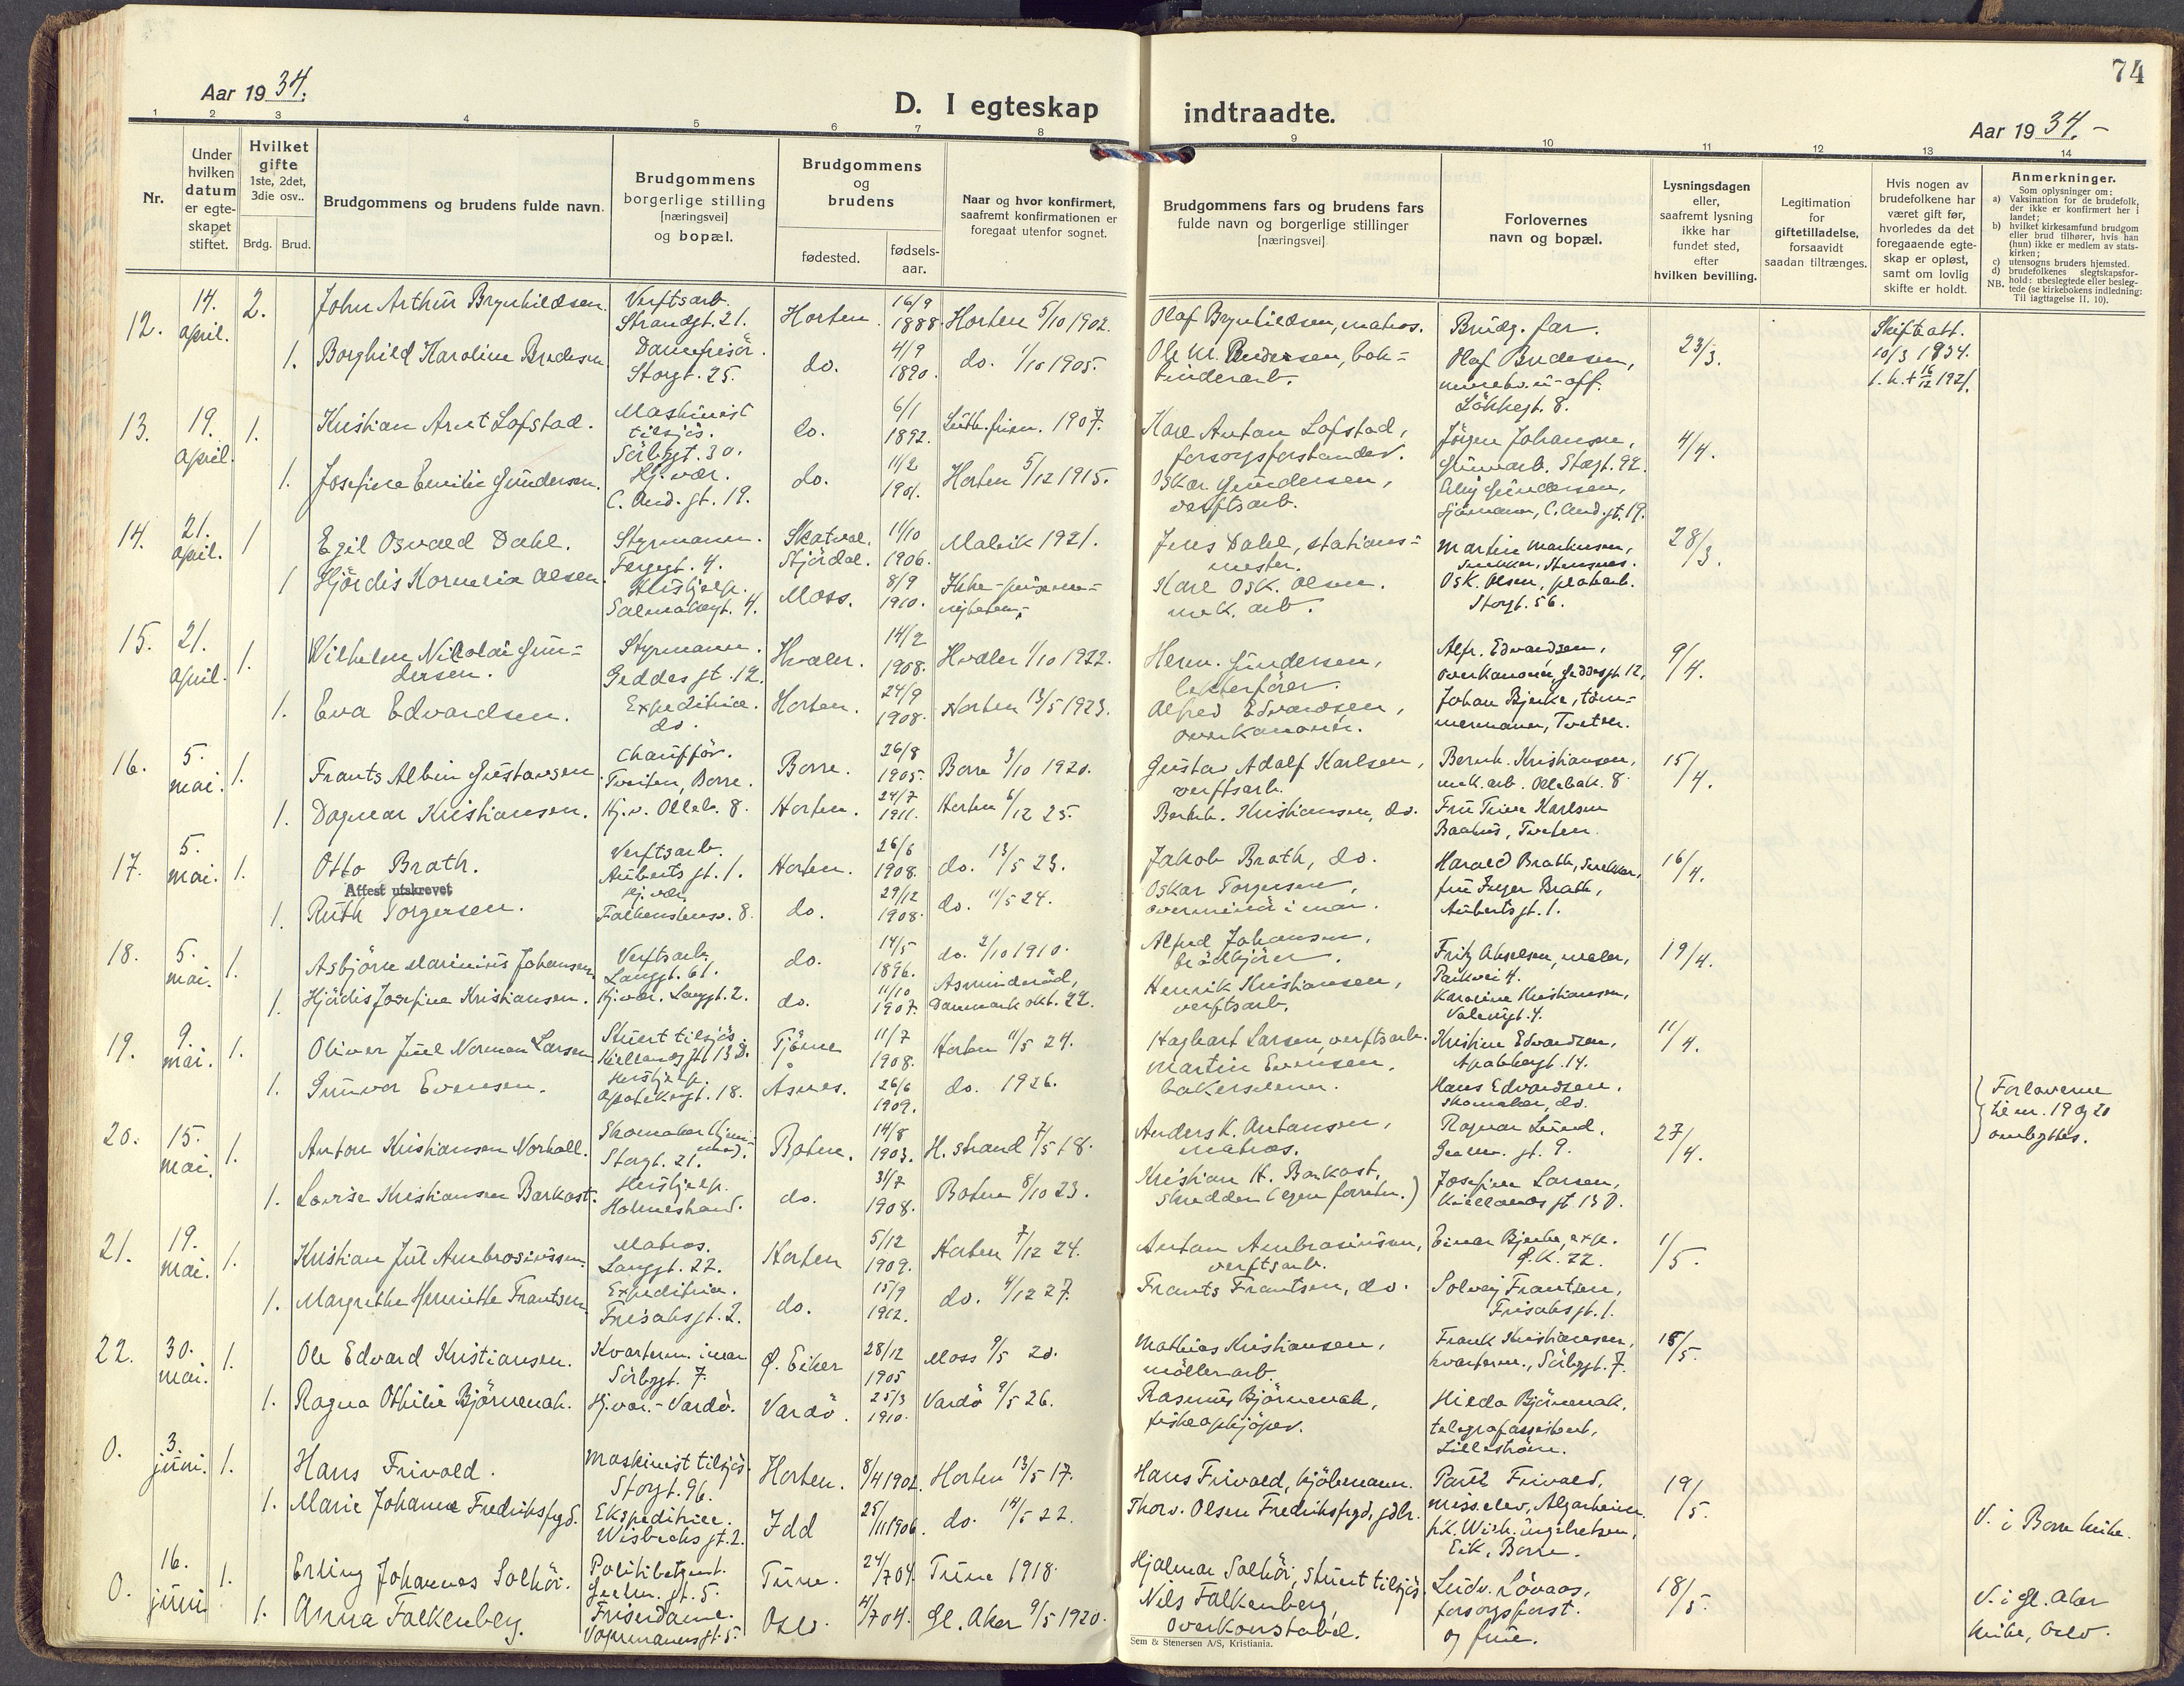 74
Aar 1934.
D. I egteskap indtraadte.
Aar 1934.-
1 2 3 4 5 6 7 8 9 10 11 12 13 14
Nr.
Under hvilken datum er egteskapet stiftet.
Hvilket gifte 1ste, 2det, 3die osv..
Brdg. Brud.
Brudgommens og brudens fulde navn.
Brudgommens borgerlige stilling [næringsvei] og bopæl.
Brudgommens og brudens
fødested.
fødselsaar.
Naar og hvor konfirmert, saafremt konfirmationen er foregaat utenfor sognet.
Brudgommens fars og brudens fars fulde navn og borgerlige stillinger [næringsvei]
Forlovernes navn og bopæl.
Lysningsdagen eller, saafremt lysning ikke har fundet sted, efter hvilken bevilling.
Legitimation for giftetilladelse, forsaavidt saadan tiltrænges.
Hvis nogen av brudefolkene har været gift før, hvorledes da det foregaaende egteskap er opløst, samt om lovlig skifte er holdt.
Anmerkninger.
Som oplysninger om:
a) Vaksination for de brudefolk, der ikke er konfirmert her i landet;
b) hvilket kirkesamfund brudgom eller brud tilhører, hvis han (hun) ikke er medlem av statskirken;
c) utensogns bruders hjemsted.
d) brudefolkenes slegtskapsforhold: ubeslegtede eller beslegtede (se kirkebokens indledning: NB. Til iagttagelse II. 10).
12. 14. april. 2. John Arthur Brynhildsen. Verftsarb. Strandgt. 21. Horten. 16/9 1888. Horten 5/10 1902. Olaf Brynhildsen, matros. Brudg. far. 23/3. Skifteatt. 10/3 1934. f. h. + 16/12 1921.
1. Borghild Karoline Damefrisör. Storgt. 25. do. 4/9 1890. do. 1/10 1905. Ole Kr. bokbinderarb. Olaf Lökkegt. 8.
13. 19. april. 1. Kristian Arnt Lofstad. Maskinist tilsjös. Sörbygt. 30. do. 6/1 1892. Luth. frim. 1907. Karl Anton Lofstad, forsorgsforstander. Jörgen Johansen, Stogt. 92. 4/4.
1. Josefine Emilie Gundersen. Hj. vær. C. And. gt. 19. do. 11/2 1901. Horten 5/12 1915. Oskar Gundersen, verftsarb. Gundersen, Sjömann, C. And. gt. 19.
14. 21. april. 1 Egil Osvald Dahl. Styrmann. Fergegt. 4. Skatval. Stjördal. 11/10 1906. Malvik 1921. Jens Dahl, stationsmester. Martin Markussen, Snekker, 28/3.
1 Hjördis Kornelia Olsen. Hushjelp. 4. Moss. 8/9 1910. Ikke Karl Osk. Olsen. mek. arb. Osk. Olsen, platearb. Storgt. 56.
15. 21. april. 1. Wilhelm Nikolai Gundersen. Styrmann. Geddes gt. 12. Hvaler. 14/2 1908. Hvaler 1/10 1922. Herm. Gundersen, lekterförer. Alfr. Edvardsen, overkanonér, Geddesgt. 12, 9/4.
1. Eva Edvardsen. Expeditrice. do. Horten. 24/9 1908. Horten 13/5 1923. Alfred Edvardsen, overkanonér. Johan Bjerke, tömmermann, Tveten.
16. 5. mai. 1. Frants Albin Gustavsen. Chaufför. Tveiten, Borre. Borre. 26/8 1905. Borre 3/10 1920. Gustav Adolf Karlsen, verftsarb. Bernh. Kristiansen, mek. arb. Ollebak. 8. 15/4.
1. Dagmar Kristiansen. Hj. v. Olleb. 8. Horten. 24/7 1911. Horten 6/12 25. Bernh. Kristiansen, do. Fru Trine Karlsen Tveten.
17. 5. mai. 1. Otto Brath. Verftsarb. Auberts gt. 1. Horten. 26/6 1908. do. 13/5 23. Jakob Brath, do. Harald Brath, Snekker, fru Inger Brath, Auberts gt. 1. 16/4.
Attest utskrevet
1. Ruth Torgersen. Hj. vær. Falkenstensv. 8. do. 29/12 1908. do. 11/5 24. Oskar Torgersen, overminör i mar.
18. 5. mai. 1. Asbjörn Marinius Johansen. Verftsarb. Langgt. 61. do. 14/5 1896. do. 2/10 1910. Alfred Johansen, brödkjörer. Fritz Akselsen, maler, Parkvei 4. 19/4.
1. Hjördis Josefine Kristiansen. Hj. vær. Langgt. 2. do. 11/10 1907. Asminderöd, Danmark okt. 22. Henrik Kristiansen, verftsarb. Karoline Kristiansen, 4.
19. 9. mai. 1. Oliver Juel Norman Larsen. Stuert tilsjös. Kiellands gt. 13 D. Tjöme 11/7 1908. Horten 11/5 24. Hagbart Larsen, verftsarb. Kristine Edvardsen, Apothkgt. 14. 11/4.
1. Gunvor Evensen. Hushjelp. Apotekergt. 18. Åsnes. 26/6 1909. do. 1926. Martin Evensen, bakersvenn. Hans Edvardsen, skomaker, do.
Forloverne til nr. 19 og 20 ombyttes.
20. 15. mai. 1. Anton Kristiansen Norhall. Skomaker Storgt. 21. Botne. 14/8 1903. H. strand 7/5 18. Anders K. Antonsen, matros. Ragnar Lund. gt. 9. 27/4.
1. Lovise Kristiansen Barkost. Hushjelp. Holmestrand. do. 31/7 1908. Botne 8/10 23. Kristian H. Barkost, skredder (egen forretn.) Josefine Larsen, Kiellands gt 13 D.
21. 19. mai. 1. Kristian Jul Ambrosiussen. Matros. Langgt. 22. Horten 5/12 1909. Horten 7/12 24. Anton Ambrosiussen, verftsarb. Einar Bjerke, exp. Ø. K. 22. 1/5.
1. Margrethe Henriette Frantsen. Expeditrice. Frisaksgt. 2. do. 15/9 1912. do. 4/12 27. Frants Frantsen, do. Solveig Frantsen, Frisaks gt. 1.
22. 30. mai. 1. Ole Edvard Kristiansen. Kvarterm. i mar. Sörbygt. 7. Ø. Eiker 28/12 1905 Moss 9/5 20. Mathias Kristiansen, möllerarb. Frank Kristiansen, kvarterm., Sörbygt. 7. 15/5.
1. Ragna Othilie Björnenak. Hj. vær. - Vardö. Vardö. 25/3 1910. Vardö 9/5 26. Rasmus Björnenak, fiskeopkjöper. Hilda Björnenak, telegrafassistent, Lilleström.
0. 3. juni. 1. Hans Frivold. Maskinist tilsjös. Storgt. 96. Horten. 8/4 1902. Horten 13/5 17. Hans Frivold, kjöbmann. Frivold, miss. elev, 19/5.
1. Marie Johanne Fredriksfryd. Ekspeditrice. Wisbechs gt. 2. Idd 25/11 1906. do. 14/5 22. Thorv. Olsen Fredriksfryd, gdbr. Eik, Borre. V. i Borre kirke.
0. 16. juni 1. Erling Johannes Solhöi. Politibetjent. gt. 5. Tune. 24/7 04. Tune 1918. Hjalmar Solhöi, Stuert tilsjös. Ludv. Lövaas, forsorgsforst. og frue. 18/5. V. i Gl. Aker kirke, Oslo.
1. Anna Falkenberg. Friserdame. gt. 5. Oslo. 4/7 04. Gl. Aker 9/5 1920. Nils Falkenberg, Overkonstabel.
Sem & Stenersen A/S, Kristiania.